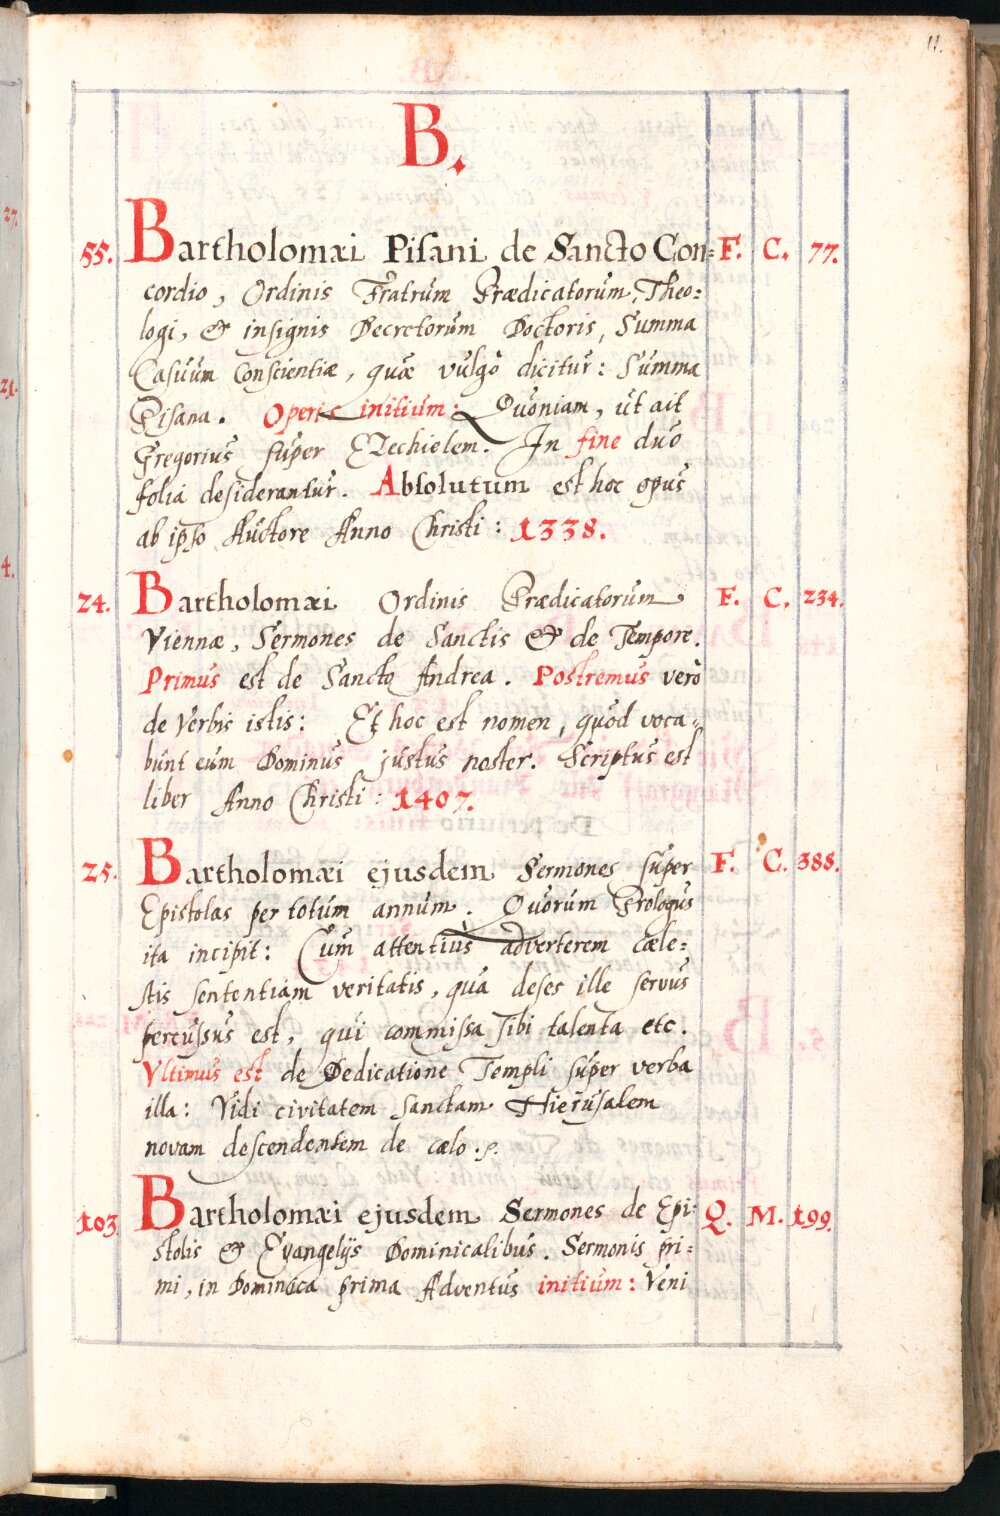 11.
B.
55. Bartholomæi Pisani de Sancto Con= F. C. 77.
cordio, Ordinis Fratrum Prædicatorum, Theo=
logi, & insignis Decretorum Doctoris, Summa
Casuum Conscientiæ, quæ vulgò dicitur: Summa
Pisana. Operis initium: Quoniam, ut ait
Gregorius super Ezechielem. In fine duo
folia desiderantur. Absolutum est hoc opus
ab ipso Auctore Anno Christi: 1338.
24. Bartholomæi Ordinis Prædicatorum F. C. 234.
Viennæ, Sermones de Sanctis & de Tempore.
Primus est de Sancto Andrea. Postremus verò
de Verbis istis: Et hoc est nomen, quod voca=
bunt eum Dominus justus noster. Scriptus est
liber Anno Christi: 1407.
25. Bartholomæi ejusdem Sermones super F. C. 388.
Epistolas per totum annum. Quorum Prologus
ita incipit: Cum attentius adverterem cæle=
stis sententiam veritatis, quâ deses ille servus
percussus est, qui commissa sibi talenta etc.
Vltimus est de Dedicatione Templi super verba
illa: Vidi civitatem sanctam Hierusalem
novam descendentem de cælo.
103 Bartholomæi ejusdem Sermones de Epi= Q. M. 199.
stolis & Evangelijs Dominicalibus. Sermonis pri=
mi, in Dominica prima Adventus initium: Veni
27.
21.
4.